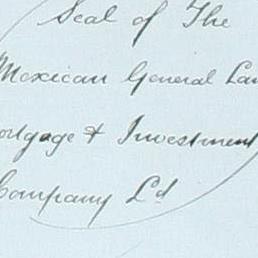 Seal of The
Mexican General Lan
ortgage & Investment
Company Ld